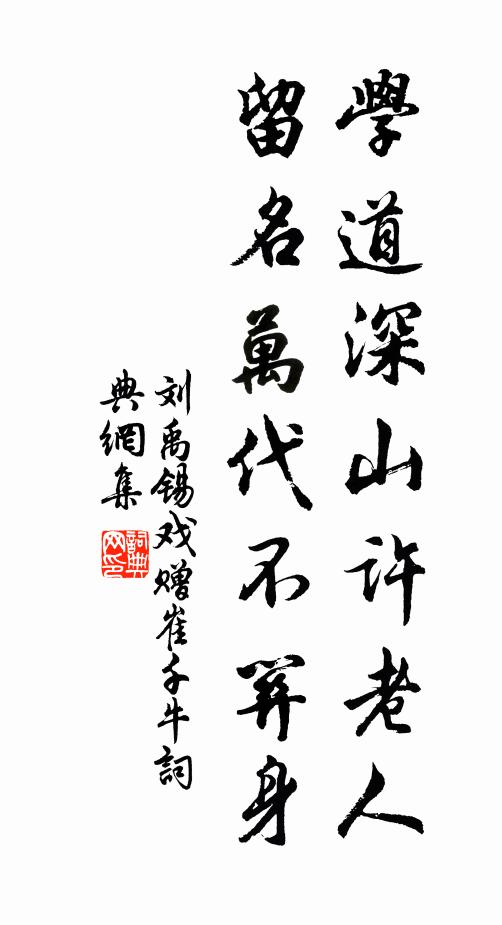 學道深山許老人
留名萬代不筭身
刘禹锡戏赠崔千牛詞
典網集
詞典
网印